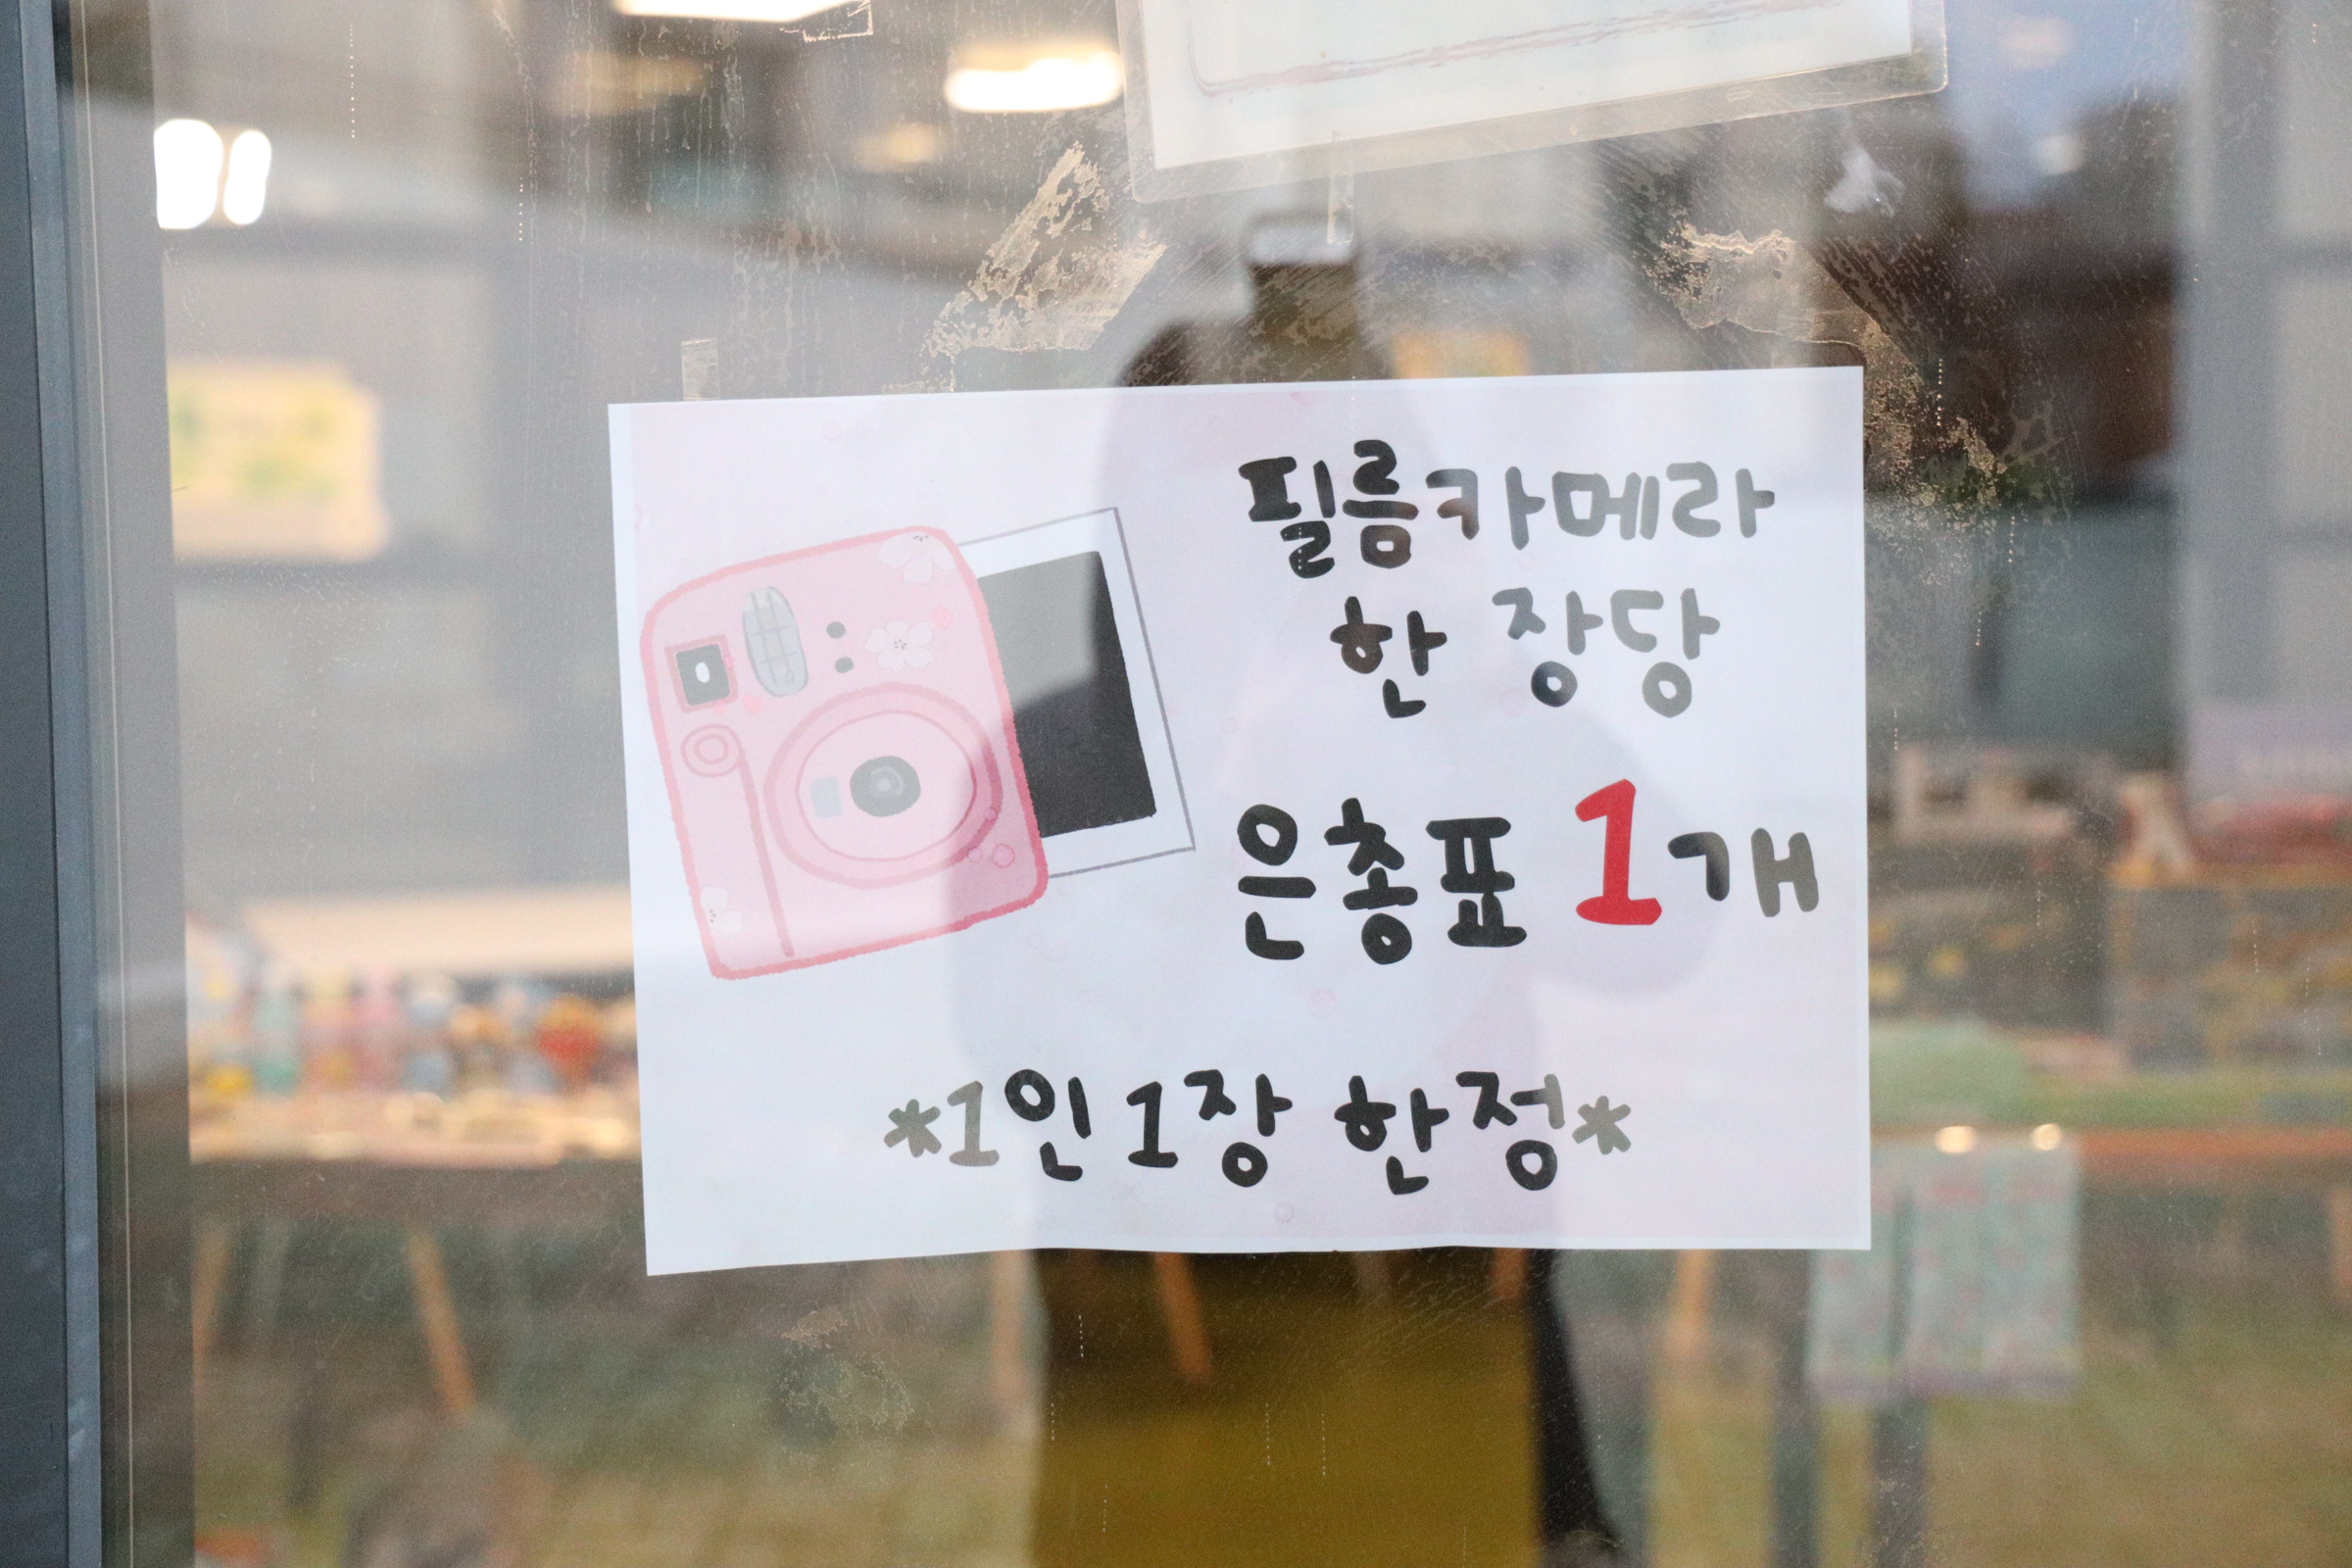 필름카메라
한 장당
은총표 1개
*1인 1장 한정*